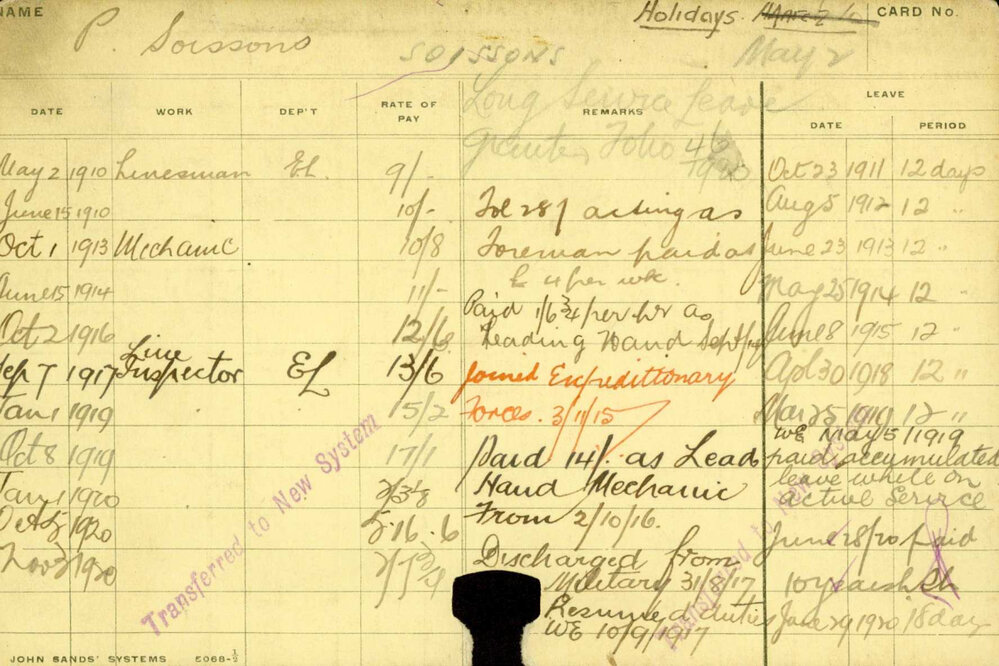 NAME
P. Soissons
SOISSONS
Holidays
May 2
CARD No.
Long Service Leave
Granted Folio 4/6
1920
DATE WORK DEP'T RATE OF PAY REMARKS LEAVE
DATE PERIOD
May 2 1910 Linesman EL. 9/- Oct 23 1911 12 days
June 15 1910 10/- Fol 287 acting as Aug 5 1912 12 "
Oct 1 1913 Mechanic 10/8 Foreman paid as June 23 1913 12 "
£ 4 per wk.
June 15 1914 11/- May 25 1914 12 "
Paid 1/6 3/4 per hr as
Oct 2 1916 12/6 Leading Hand Sept June 8 1915 12 "
Sep 7 1917 Line Inspector EL 13/6 Joined Expeditionary Apl 30 1918 12 "
Jan 1 1919 15/2 Forces. 3/11/15 Mar 25 1919 12 "
WE May 5/1919
Oct 8 1919 17/1 Paid 14/. as Lead paid accumulated
leave while on
Jan 1 1920 Hand Mechanic active Service
Oct 1920 5.16.6 From 2/10/16. June 28/20 paid
Nov 1920 Discharged from
Military 31/8/17 10 years
Resumed duties June 29 1920 18 day
WE 10/9/1917
Transferred to New System
Transferred to New System
JOHN SANDS' SYSTEMS 5068-1/2